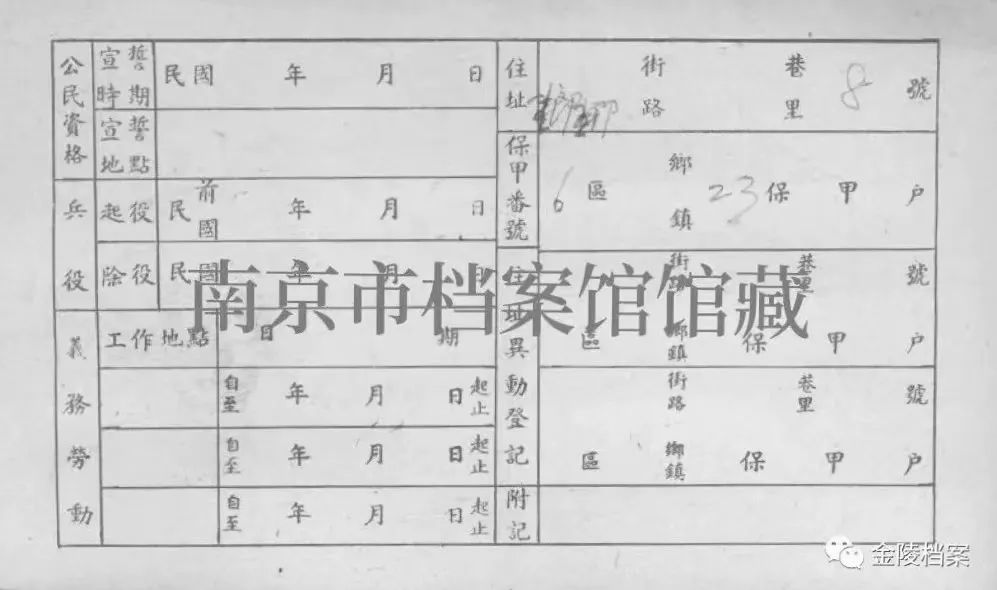 公民資格 宣誓時期 民國 年 月 日
宣誓地點
兵役 起役 民前國 年 月 日
除役 民國 年 月 日
義務勞動 工作地點 日 期
自至 年 月 日 起止
自至 年 月 日 起止
自至 年 月 日 起止
住址 街路 巷里 8 號
保甲番號 6 區 鄉鎮 23 保 甲 戶
住址異動登記 街路 巷里 號
區 鄉鎮 保 甲 戶
街路 巷里 號
區 鄉鎮 保 甲 戶
附記
南京市档案馆馆藏
金陵档案